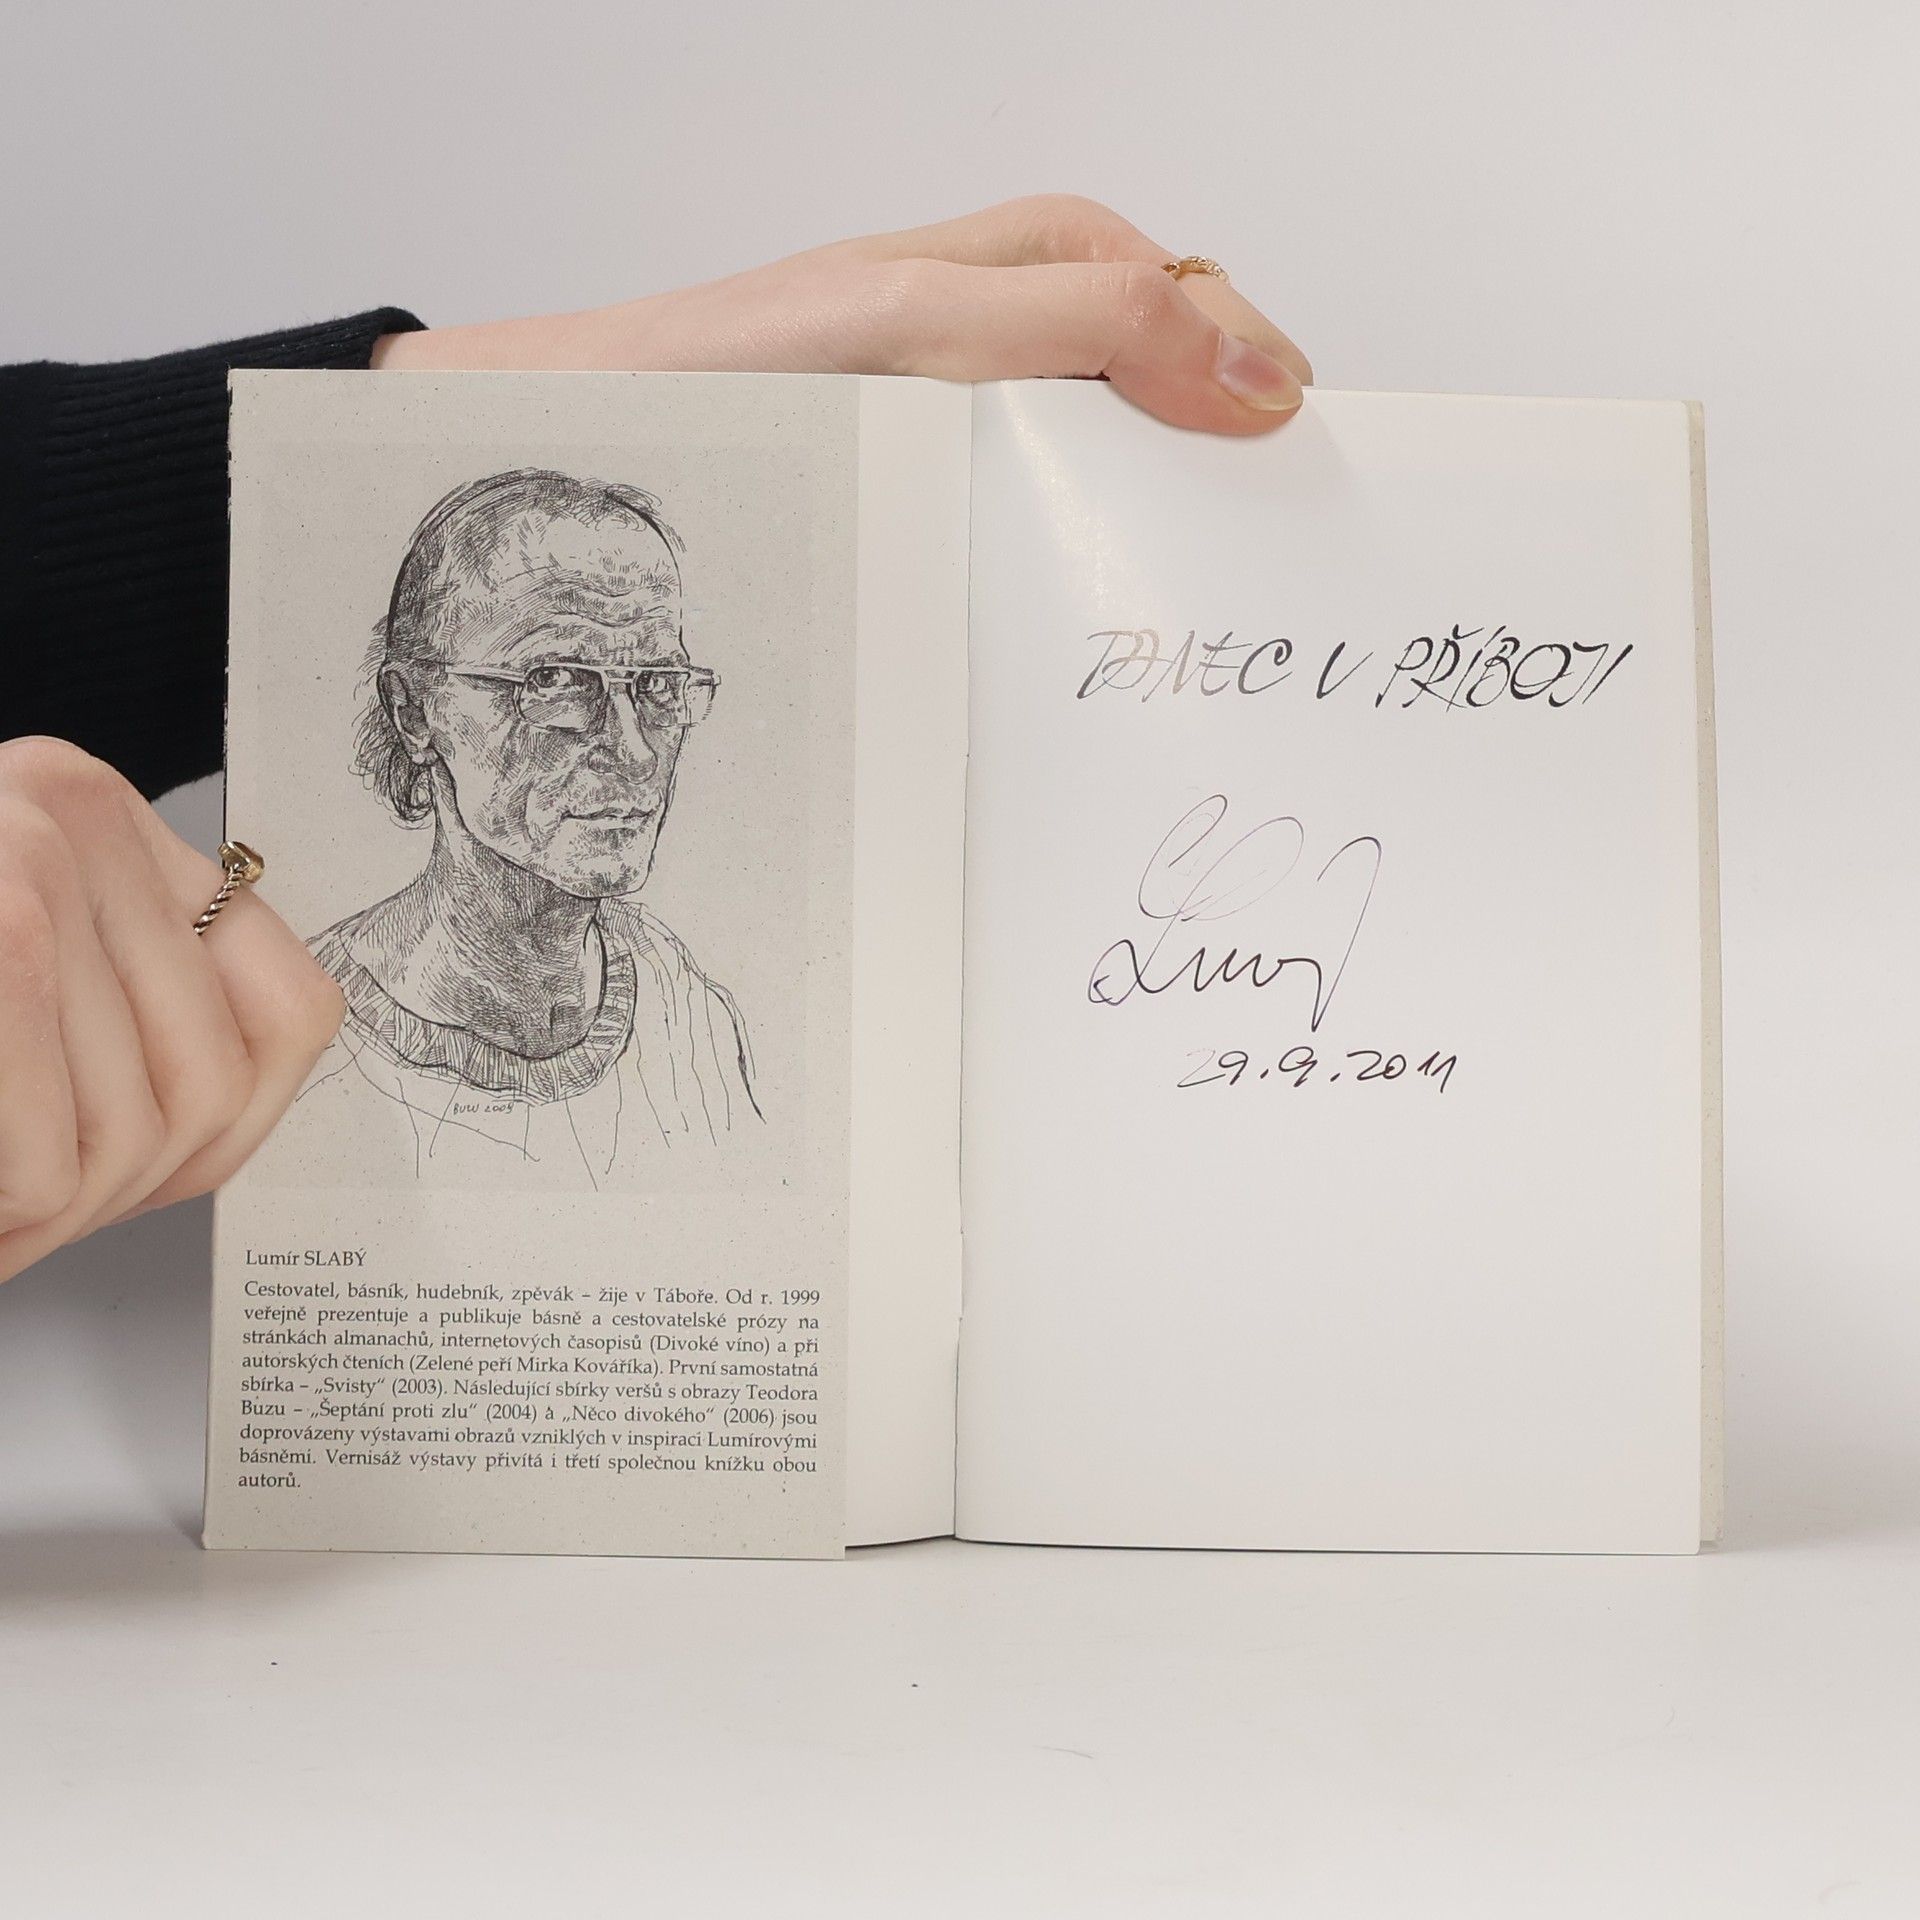 BUZU 2009
Lumír SLABÝ
Cestovatel, básník, hudebník, zpěvák – žije v Táboře. Od r. 1999
veřejně prezentuje a publikuje básně a cestovatelské prózy na
stránkách almanachů, internetových časopisů (Divoké víno) a při
autorských čteních (Zelené peří Mirka Kováříka). První samostatná
sbírka – „Svisty“ (2003). Následující sbírky veršů s obrazy Teodora
Buzu – „Šeptání proti zlu“ (2004) a „Něco divokého“ (2006) jsou
doprovázeny výstavami obrazů vzniklých v inspiraci Lumírovými
básněmi. Vernisáž výstavy přivítá i třetí společnou knížku obou
autorů.
TANEC V PŘÍBOJI
29.9.2011